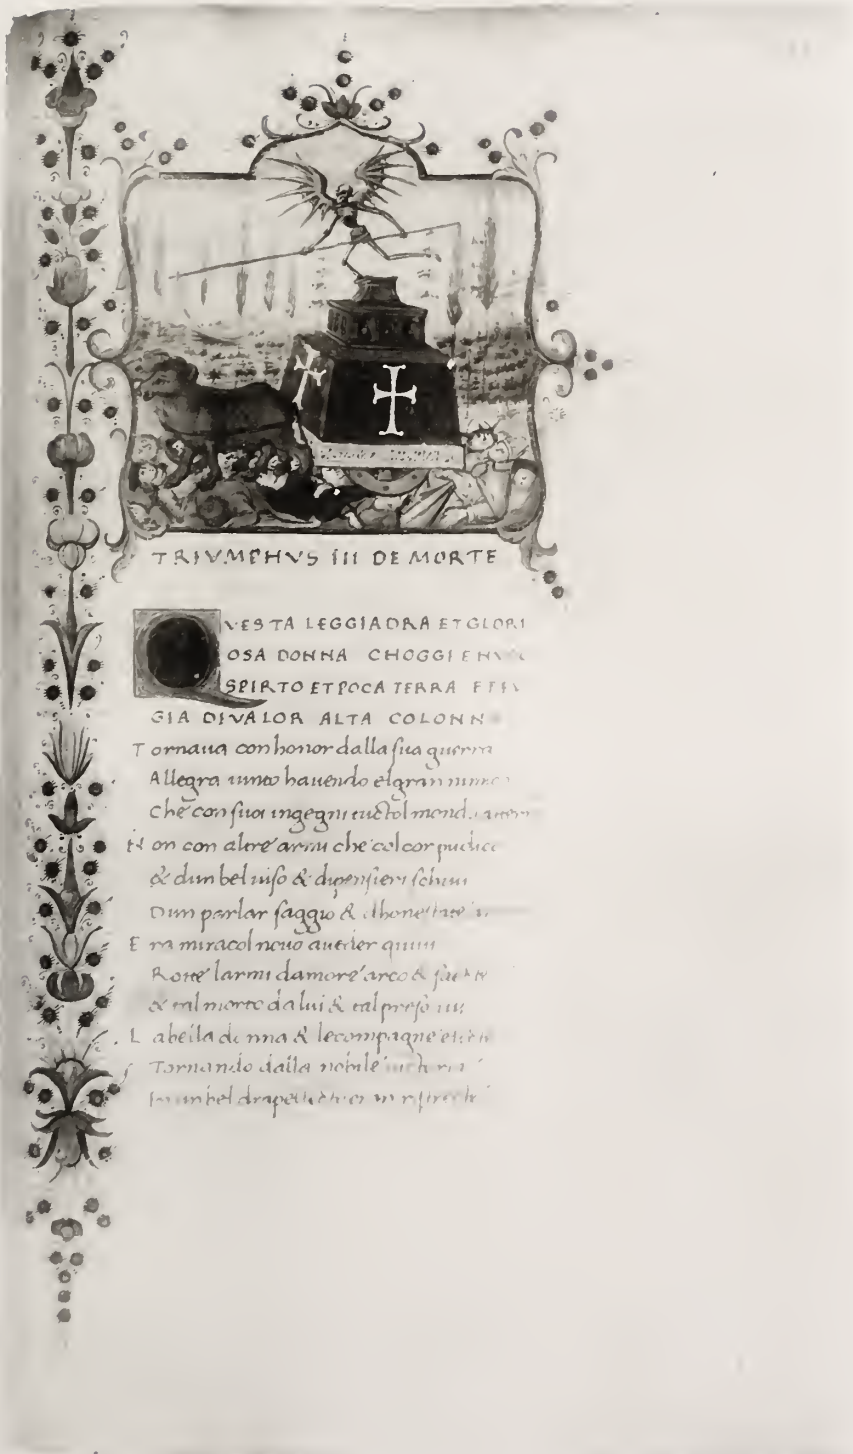 TRIVMPHVS III DE MORTE
QVESTA LEGGIADRA ET GLORI
OSA DONNA CHOGGI E
SPIRTO ET POCA TERRA
GIA DI VALOR ALTA COLONN
Tornaua con honor dalla sua guerra
Allegra uinto hauendo el gran
Che con suoi ingegni tuctol
Non con altre armi che col cor pudico
& dun bel uiso & dipensieri schiui
Dun parlar saggio & dhonestate
Era miracol nouo aueder quiui
Rotte larmi damore arco &
& tal morto da lui & tal preso uiu
La bella donna & le compagne
Tornando dalla nobile
In un bel